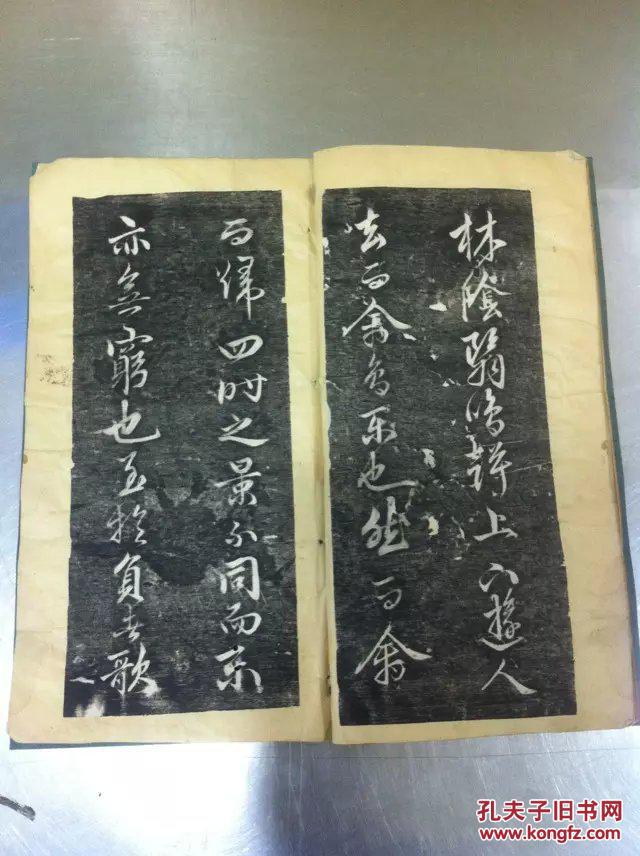 林陰翳鳴聲上下遊人
去而禽鳥樂也然而禽
而歸四時之景不同而樂
亦無窮也至於負者歌
孔夫子旧书网
www.kongfz.com